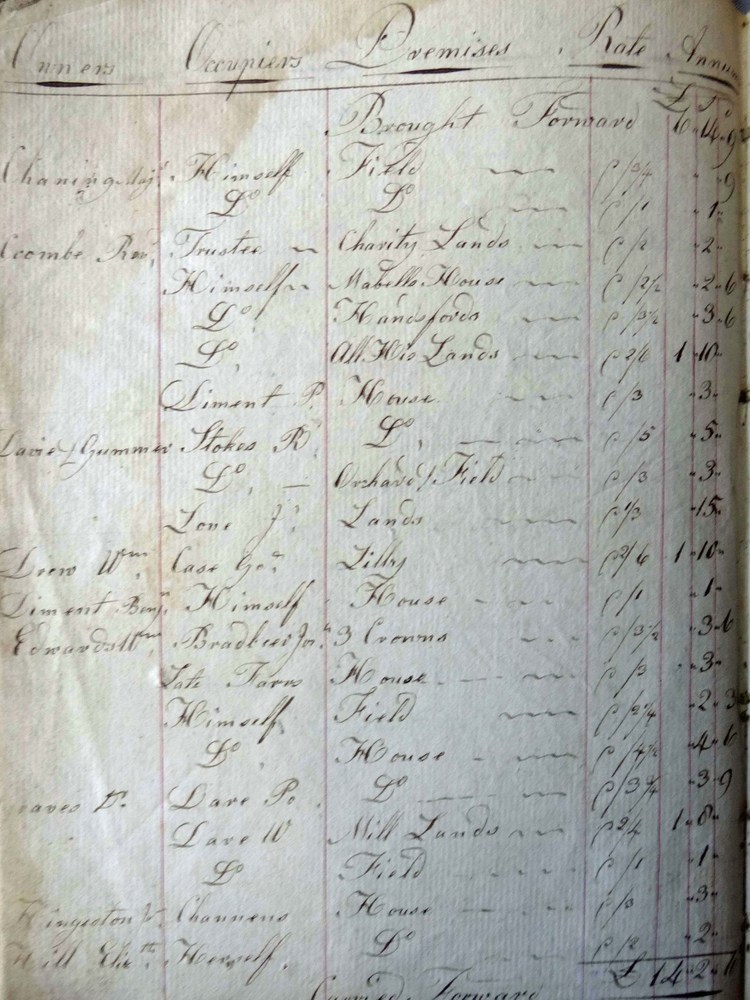 Owners Occupiers Premises Rate Annum
Brought Forward £ 6 14 9
Himself Field @ /3/4 " " 9
Do Do @ /1 " 1 "
Coombe Revd Trustee Charity Lands @ /2 " 2 "
Himself Mabells House @ /2½ " 2 6
Do Handsfords @ /3½ " 3 6
Do All His Lands @ 2/6 1 10 "
Diment P House @ /3 " 3 "
Davie & Gummer Stokes R Do @ /5 " 5 "
Do Orchard & Field @ /3 " 3 "
Lone Js Lands @ 1/3 " 15 "
Drew Wm Case Geo Lilly @ 2/6 1 10 "
Diment Benj. Himself House @ /1 " 1 "
Edwards Wm 3 Crowns @ /3½ " 3 6
Late Farrs House @ /3 " 3 "
Himself Field @ /2¼ " 2 3
Do House @ /4½ " 4 6
Dare Do @ /3¾ " 3 9
Dare W Mill Lands @ 2/4 1 8 "
Do Field @ /1 " 1 "
Channens House @ /3 " 3 "
Hill Elizth Herself Do @ /2 " 2 "
Carried Forward £ 14 2